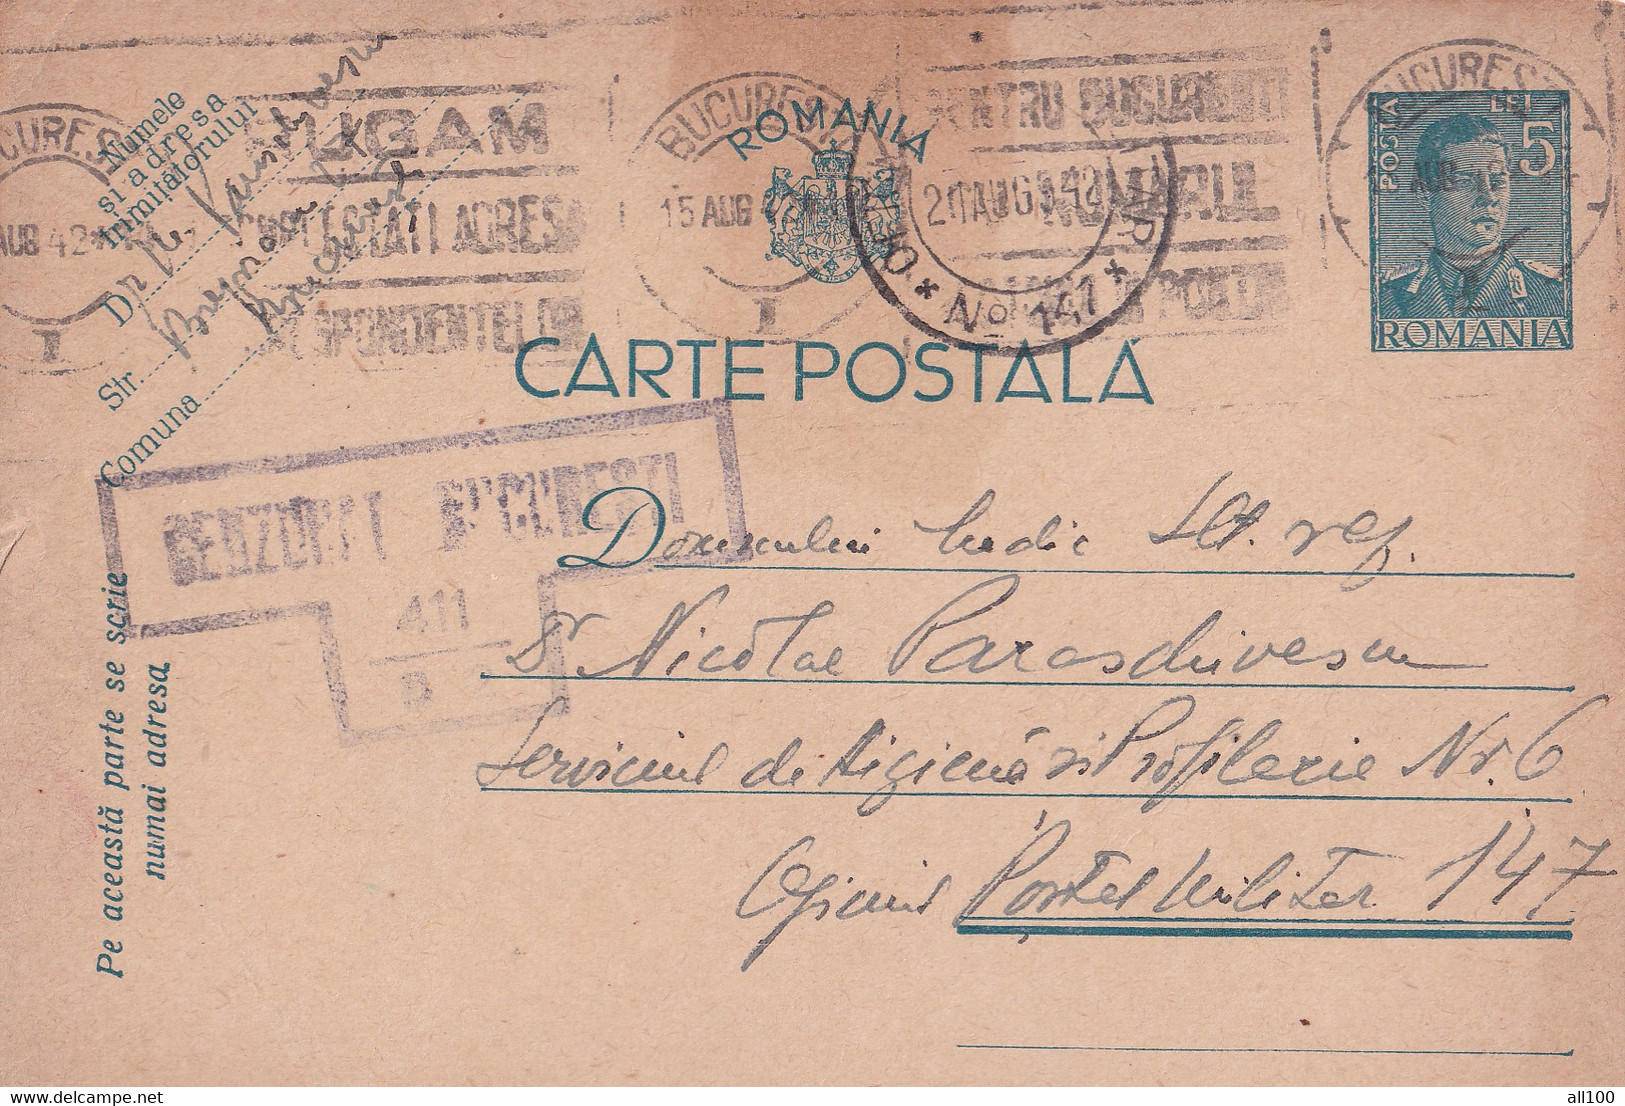 Numele
și adresa
trimițătorului
D
Str.
București
Comuna
RUGAM
COMPLECTATI ADRESA
CORESPONDENTELOR
BUCUREȘTI
AUG 42
I
BUCUREȘTI
15 AUG
I
ROMANIA
PENTRU BUCUREȘTI
NUMARUL
20 AUG 942
* No 141 *
BUCUREȘTI
POSTA
LEI
5
ROMANIA
CARTE POSTALĂ
CENZURAT BUCUREȘTI
411
B
Pe această parte se scrie
numai adresa
Domnului Medic Slt. rez.
Dr Nicolae Paraschivescu
Serviciul de Higienă si Profilaxie Nr. 6
Oficiul Poștal Militar 147
all100